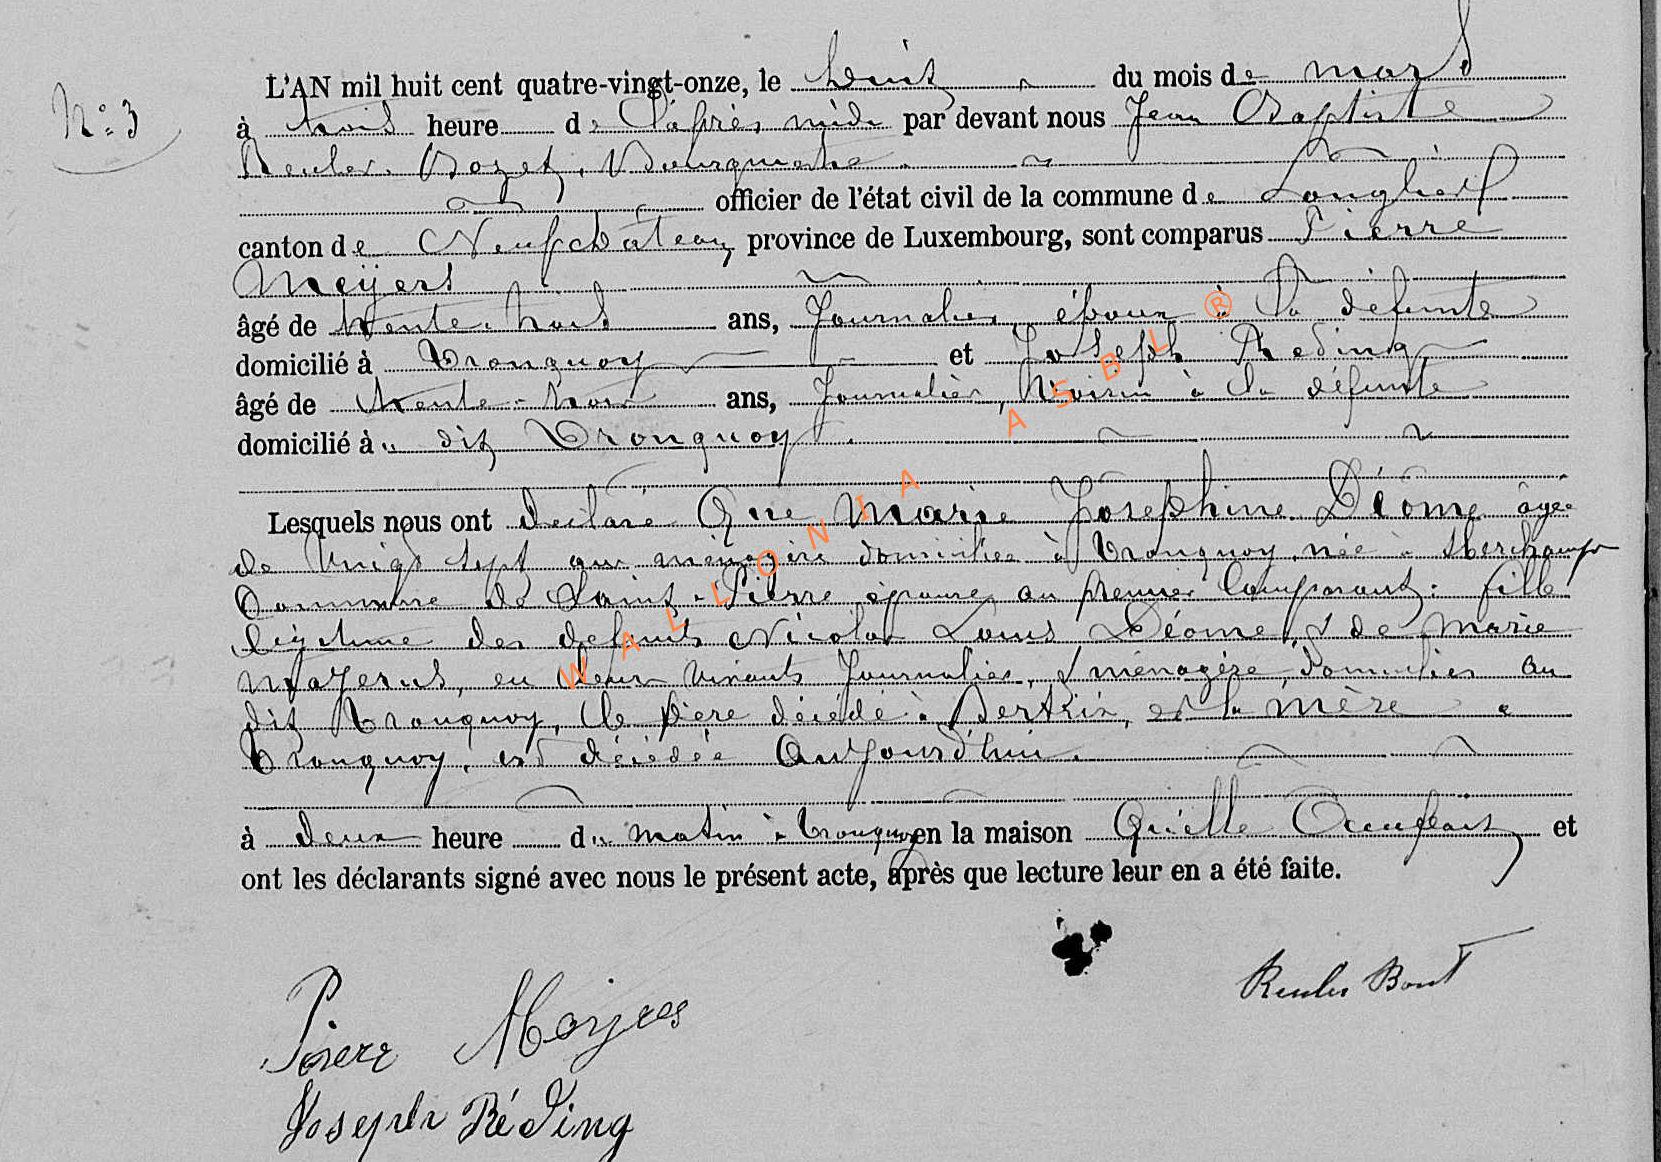 N° 3
L'AN mil huit cent quatre-vingt-onze, le huit du mois de mars
à trois heure de l'après midi par devant nous Jean Baptiste
Reuler Bozet, Bourgmestre
officier de l'état civil de la commune de Longlier
canton de Neufchâteau province de Luxembourg, sont comparus Pierre
Meyers
âgé de trente trois ans, Journalier, époux à la défunte
domicilié à Tronquoy et Joseph Reding
âgé de trente-trois ans, Journalier, Voisin à la défunte
domicilié à dit Tronquoy
Lesquels nous ont déclaré Que Marie Joséphine Déome âgée
de vingt sept ans ménagère domiciliée à Tronquoy née à
Commune de Saint-Pierre, épouse au premier Comparant: fille
légitime des défunts Nicolas Louis Déome, & de Marie
Mayerus, en leur vivants Journalier, & ménagère, domiciliés au
dit Tronquoy, le père décédé à Bertrix, et la mère à
Tronquoy, est décédée Aujourd'hui.
à deux heure du matin à Tronquoy en la maison Qu'elle Occupait et
ont les déclarants signé avec nous le présent acte, après que lecture leur en a été faite.
Pierre Meyers
Joseph Réding
WALLONIA ASBL ®